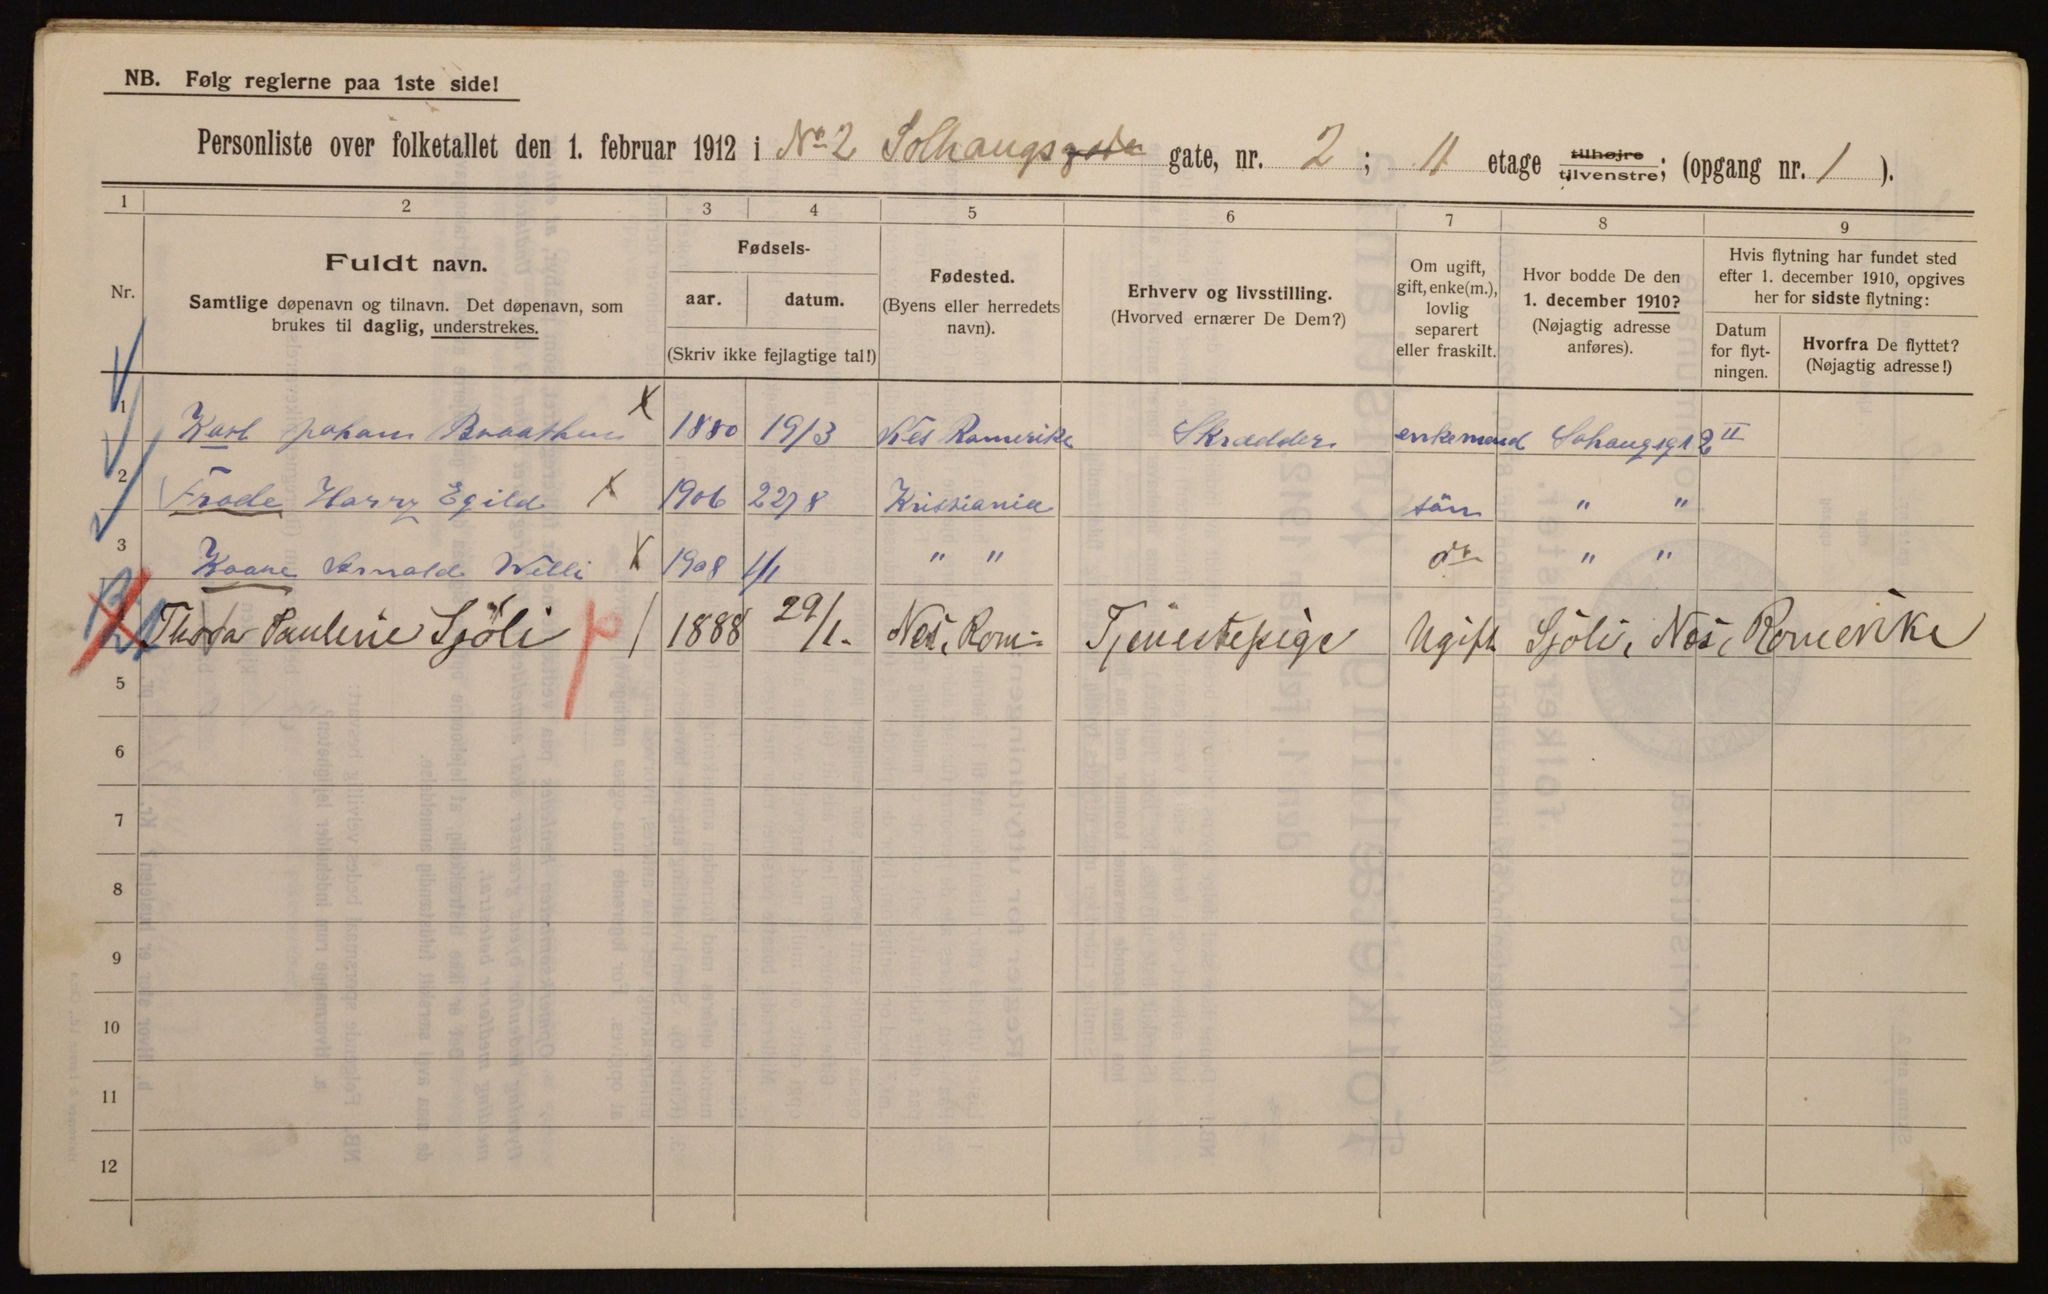 NB. Følg reglerne paa 1ste side!
Personliste over folketallet den 1. februar 1912 i No 2 Solhaugsgaten gate, nr. 2 ; II etage tilhøjre tilvenstre; (opgang nr. 1 ).
1 2 3 4 5 6 7 8 9
Nr.
Fuldt navn.
Samtlige døpenavn og tilnavn. Det døpenavn, som
brukes til daglig, understrekes.
Fødsels-
aar. datum.
(Skriv ikke fejlagtige tal!)
Fødested.
(Byens eller herredets
navn).
Erhverv og livsstilling.
(Hvorved ernærer De Dem?)
Om ugift,
gift, enke(m.),
lovlig
separert
eller fraskilt.
Hvor bodde De den
1. december 1910?
(Nøjagtig adresse
anføres).
Hvis flytning har fundet sted
efter 1. december 1910, opgives
her for sidste flytning:
Datum
for flyt-
ningen.
Hvorfra De flyttet?
(Nøjagtig adresse!)
1 Karl Johann Braathen x 1880 19/3 Nes Romerike Skrædder enkemand Sohaugsgt 2 II
2 Frode Harry Egild x 1906 22/8 Kristiania sön " "
3 Kaare Arnold Willi x 1908 1/1 " " do " "
Thora Pauline Sjöli / 1888 29/1- Nes, Rom- Tjenestepige Ugift Sjöli, Nes, Romerike
5
6
7
8
9
10
11
12